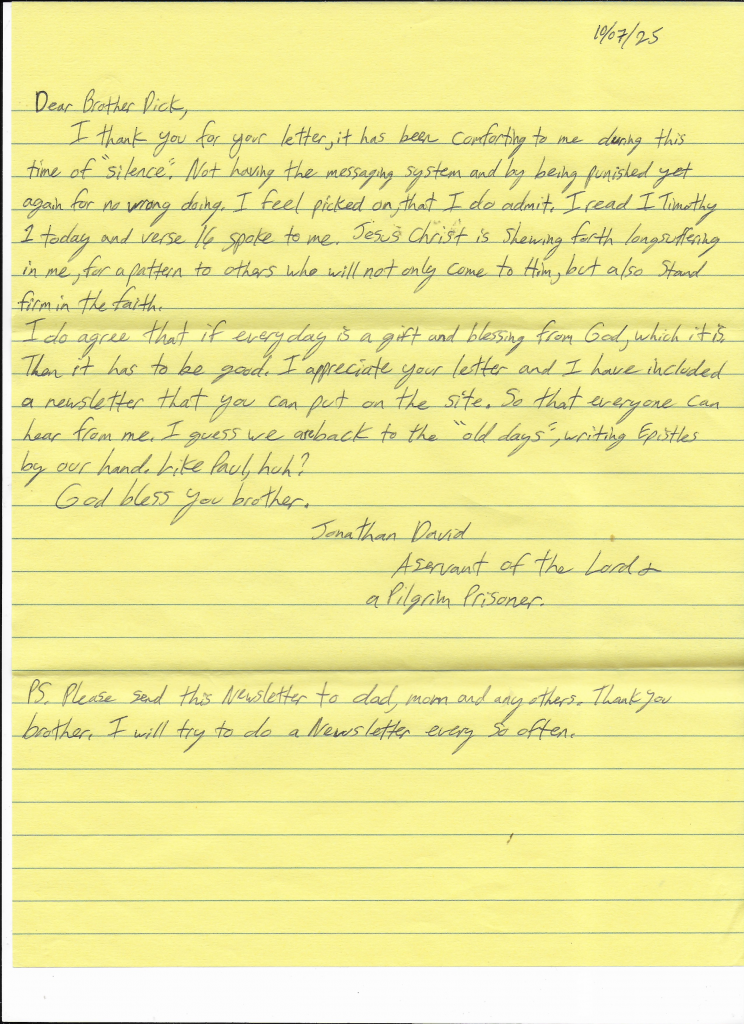 10/07/25
Dear Brother Dick,
I thank you for your letter, it has been comforting to me during this
time of "silence". Not having the messaging system and by being punished yet
again for no wrong doing. I feel picked on, that I do admit. I read I Timothy
1 today and verse 16 spoke to me. Jesus Christ is shewing forth longsuffering
in me, for a pattern to others who will not only come to Him, but also stand
firm in the faith.
I do agree that if everyday is a gift and blessing from God, which it is,
Then it has to be good. I appreciate your letter and I have included
a newsletter that you can put on the site. So that everyone can
hear from me. I guess we are back to the "old days", writing Epistles
by our hand. Like Paul, huh?
God bless you brother.
Jonathan David
A servant of the Lord &
a Pilgrim Prisoner.
PS. Please send this Newsletter to dad, mom and any others. Thank you
brother. I will try to do a Newsletter every so often.